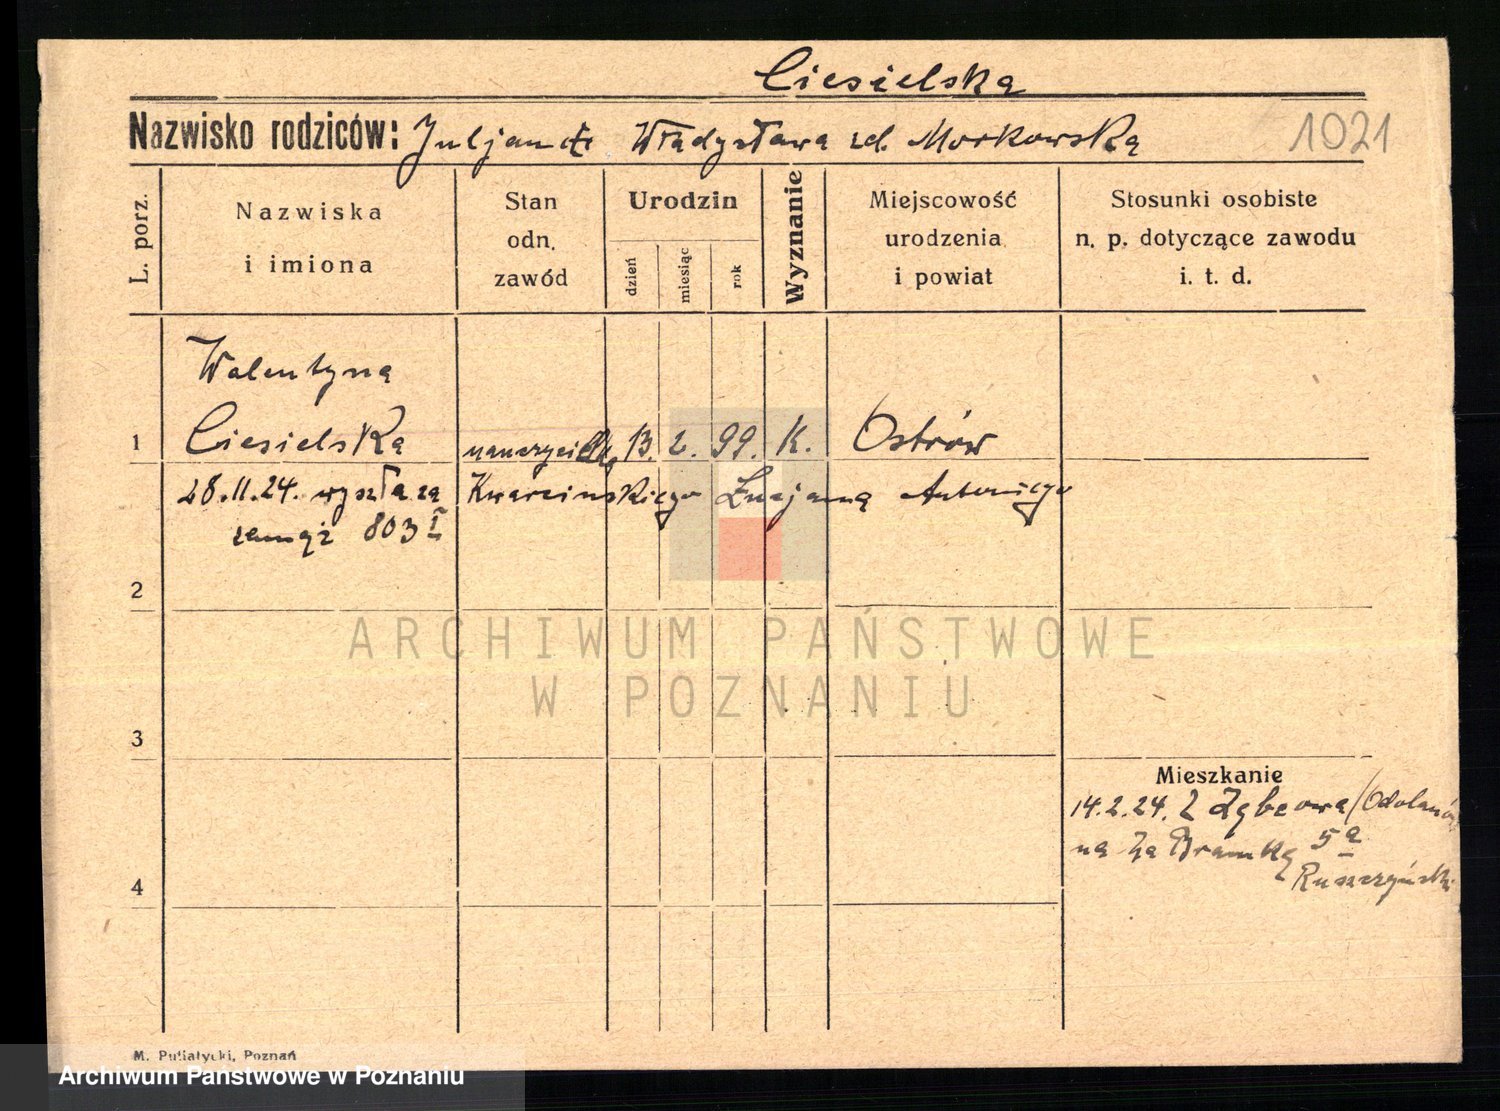 Ciesielska
Nazwisko rodziców: Juljan Władysława zd. Morkowska 1021
L. porz.
Nazwiska
i imiona
Stan
odn.
zawód
Urodzin
dzień
miesiąc
rok
Wyznanie
Miejscowość
urodzenia
i powiat
Stosunki osobiste
n. p. dotyczące zawodu
i. t. d.
Walentyna
1 Ciesielska nauczycielka 13. 2. 99. K. Ostrów
28.11.24. wyszła za Kwarcińskiego Łucjana Antoniego
zamąż 803 I
2
ARCHIWUM PAŃSTWOWE
W POZNANIU
3
Mieszkanie
14.2.24. Z (Odolanów
na Za Bramką 5a
4
Ruszczyński
M. Putiatycki, Poznań
Archiwum Państwowe w Poznaniu